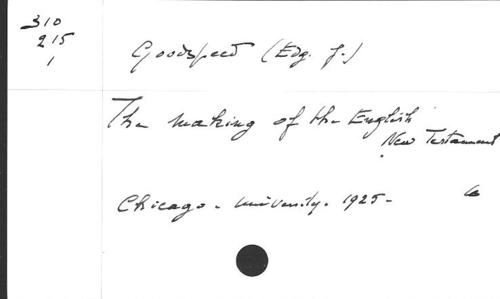 310
215
1
Goodspeed (Edg. J.)
The making of the English
New Testament
Chicago. University. 1925-